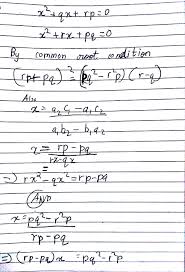 x² + qx + rp = 0
x² + rx + pq = 0
By common root condition
(rp + pq)² = (pq² - r²p) (r - q)
Also
x = a₂c₁ - a₁c₂
a₁b₂ - b₁a₂
x = rp - pq
rx - qx
=> rx² - qx² = rp - pq
AND
x = pq² - r²p
rp - pq
=> (rp - pq)x = pq² - r²p